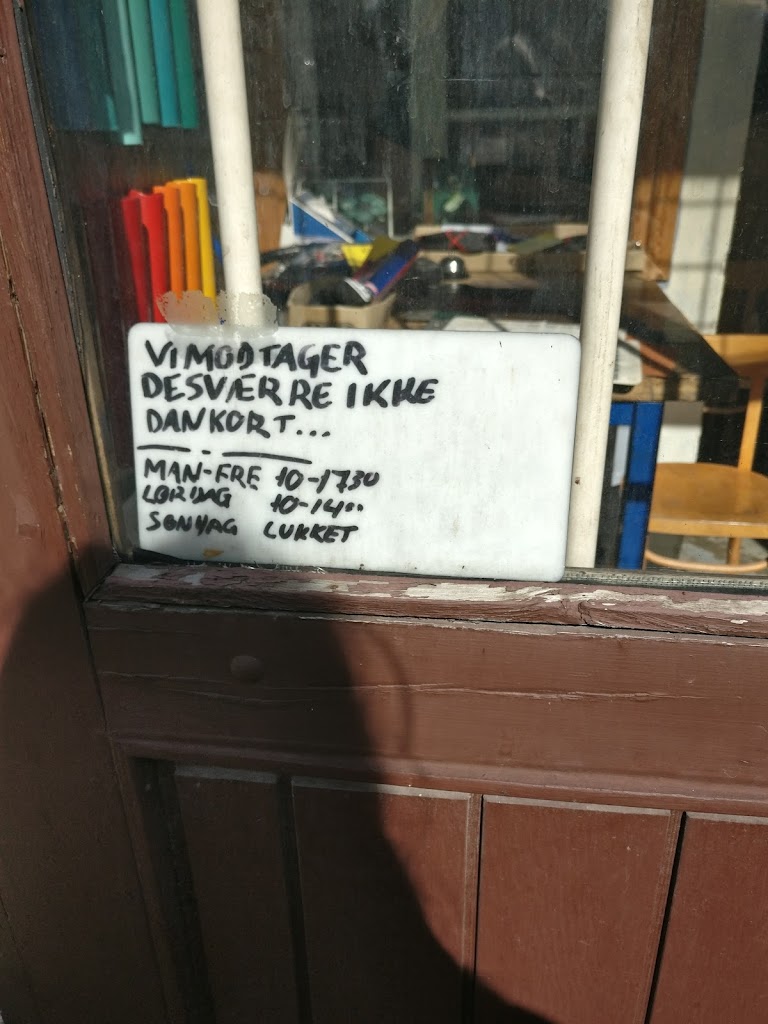 VI MODTAGER
DESVÆRRE IKKE
DANKORT...
MAN-FRE 10-1730
LØRDAG 10-14..
SØNDAG LUKKET